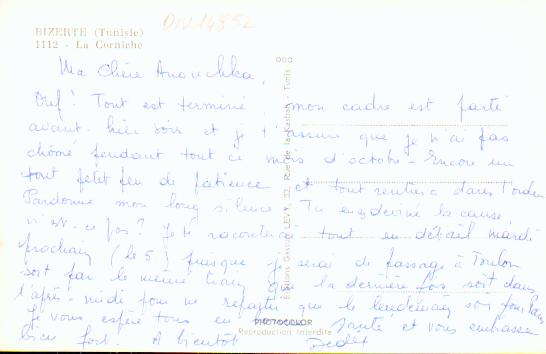 DIV14852
BIZERTE (Tunisie)
1112 - La Corniche
Ma Chère Anouchka,
Ouf! Tout est terminé, mon cadre est parti
avant-hier soir et je t'assure que je n'ai pas
chômé pendant tout ce mois d'octobre - Encore un
tout petit peu de patience et tout rentrera dans l'ordre
Pardonne mon long silence. Tu en devine la cause,
n'est-ce pas? Je te raconterai tout en détail mardi
prochain (le 5) puisque je serai de passage à Toulon
soit par le même train que la dernière fois soit dans
l'après-midi pour ne repartir que le lendemain soir pour Paris
Je vous espère tous en santé et vous embrasse
bien fort. A bientôt
Editions Gaston LEVY, 32, Rue de la Kasbah - Tunis
PHOTOCOLOR
Reproduction Interdite